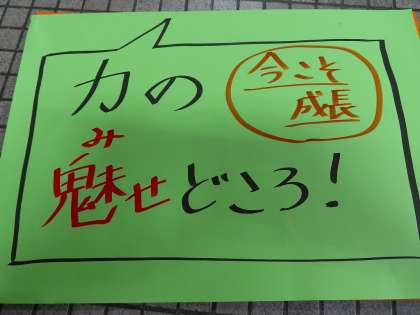 力の
今こそ
成長
み
魅せどころ!